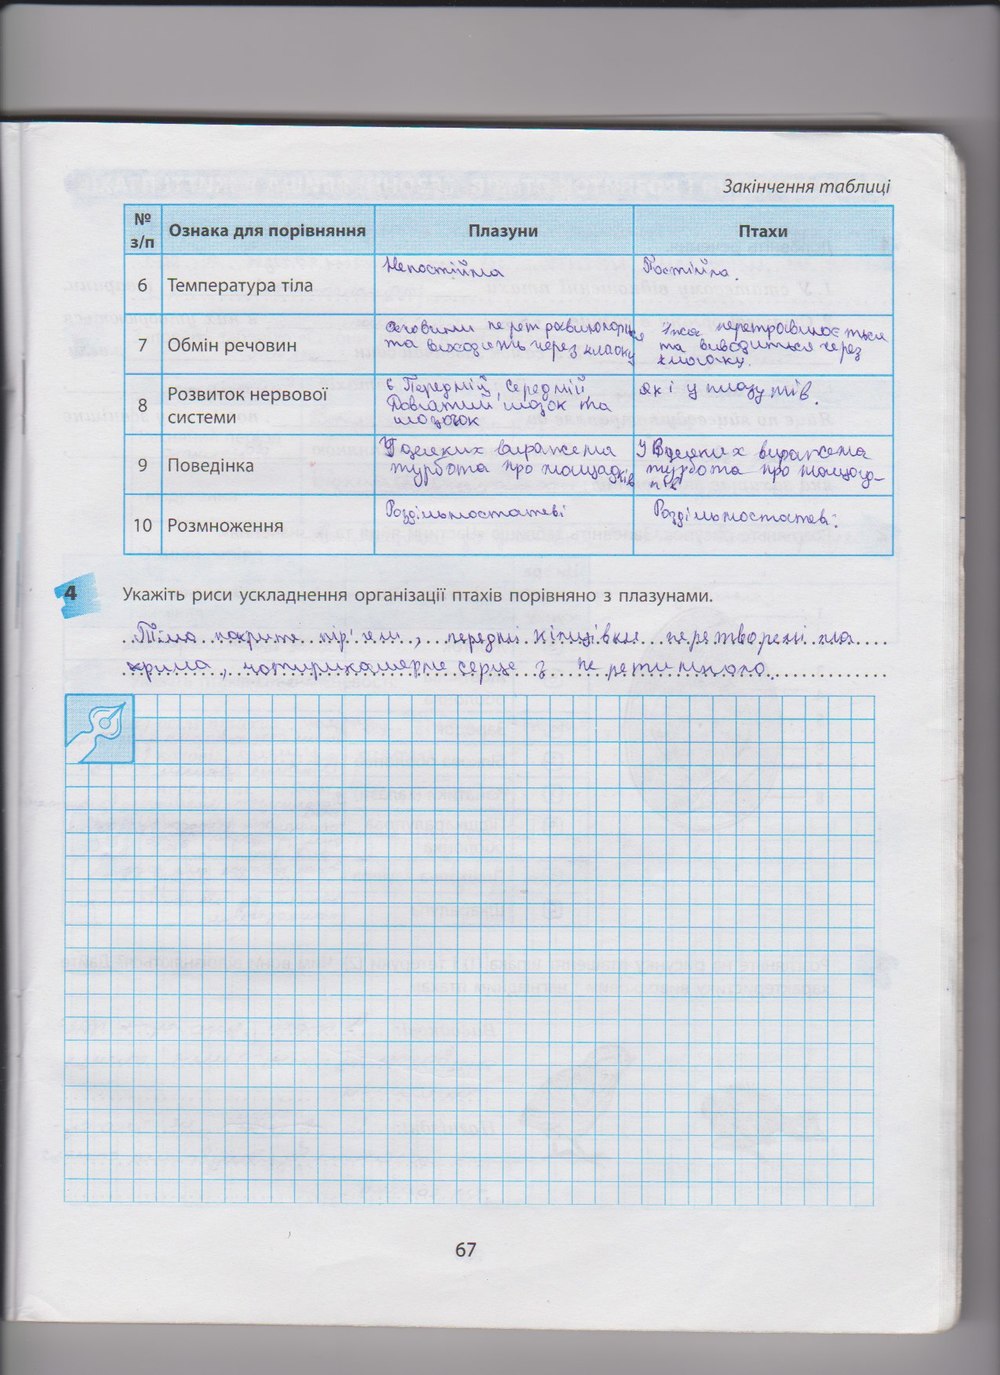 Закінчення таблиці
№ з/п Ознака для порівняння Плазуни Птахи
6 Температура тіла Непостійна Постійна.
7 Обмін речовин
та виходять через клоаку
Їжа перетравлюється
та виводиться через
клоаку.
8 Розвиток нервової системи
є Передній, середній,
Довгатий мозок та
мозочок
як і у плазунів.
9 Поведінка
У деяких виражена
турбота про нащадків
У Деяких виражена
турбота про нащад-
ків
10 Розмноження Роздільностатеві Роздільностатеві.
4 Укажіть риси ускладнення організації птахів порівняно з плазунами.
Тіло покрите пір'ям, передні кінцівки перетворені на
крила, чотирикамерне серце з
67